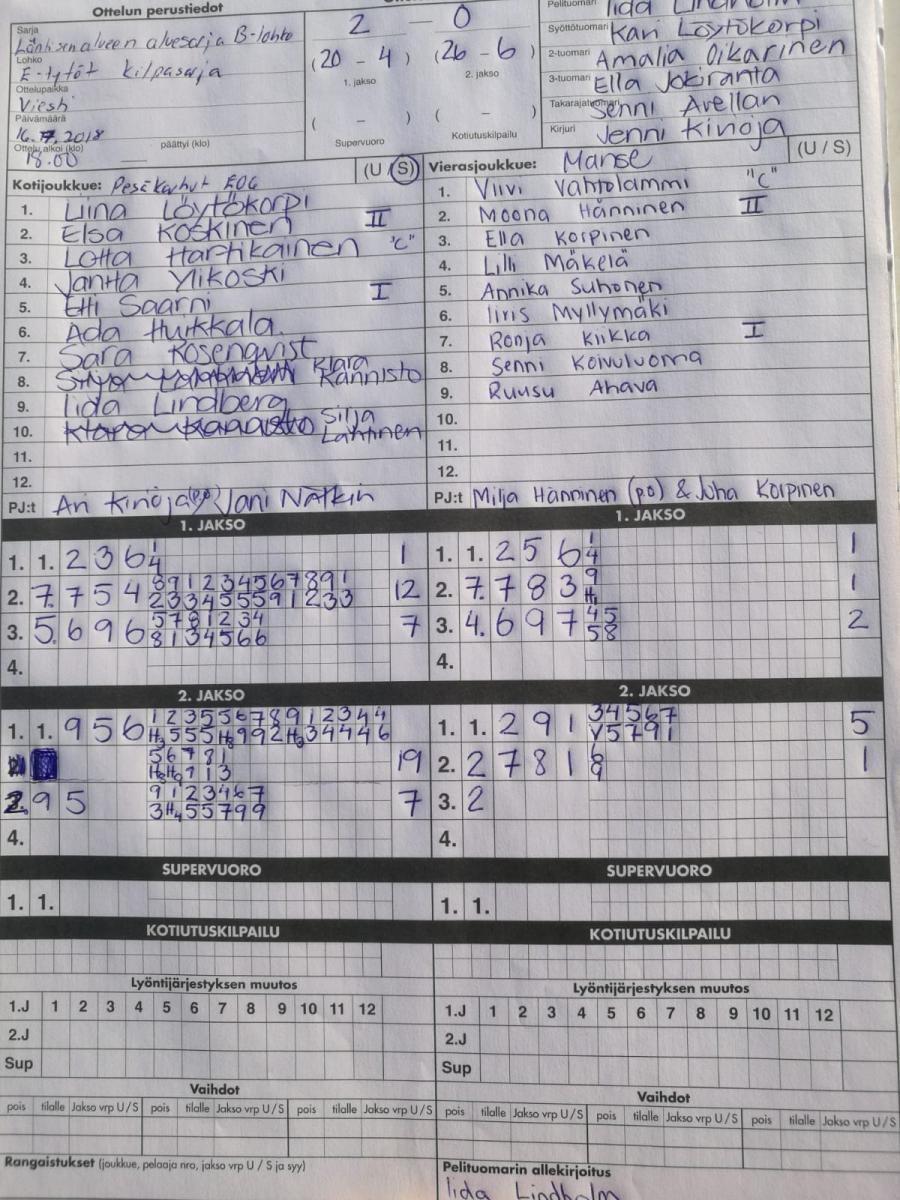 Ottelun perustiedot
Sarja
Läntisen alueen aluesarja B-lohko
Lohko
E-tytöt kilpasarja
Ottelupaikka
Viesti
Päivämäärä
16.7.2018
Ottelu alkoi (klo) 18.00 päättyi (klo)
2 — 0
(20 - 4) (26 - 6)
1. jakso 2. jakso
( - ) ( - )
Supervuoro Kotiutuskilpailu
Pelituomari Iida Lindholm
Syöttötuomari Kari Löytökorpi
2-tuomari Amalia Oikarinen
3-tuomari Ella Jokiranta
Takarajatuomari Senni Avellan
Kirjuri Jenni Kinoja
Kotijoukkue: Pesäkarhut E06 (U/S)
1. Liina Löytökorpi
2. Elsa Koskinen II
3. Lotta Hartikainen "C"
4. Jantta Ylikoski
5. Etti Saarni I
6. Ada Huikkala
7. Sara Rosenqvist
8. Klara Kannisto
9. Iida Lindberg
10. Silja Lahtinen
11.
12.
PJ:t Ari Kinoja (po) Jani Nätkin
Vierasjoukkue: Manse (U/S)
1. Viivi Vahtolammi "C"
2. Moona Hänninen II
3. Ella Korpinen
4. Lilli Mäkelä
5. Annika Suhonen
6. Iiris Myllymäki
7. Ronja Kiikka I
8. Senni Koivuluoma
9. Ruusu Ahava
10.
11.
12.
PJ:t Milja Hänninen (po) & Juha Korpinen
1. JAKSO
1. 1. 2 3 6 1 1
4
2. 7. 7 5 4 8 9 1 2 3 4 5 6 7 8 9 1 12
2 3 3 4 5 5 5 9 1 2 3 3
3. 5. 6 9 6 5 7 8 1 2 3 4 7
8 1 3 4 5 6 6
4.
1. JAKSO
1. 1. 2 5 6 1 1
4
2. 7. 7 8 3 9 1
H1
3. 4. 6 9 7 4 5 2
5 8
4.
2. JAKSO
1. 1. 9 5 6 1 2 3 5 5 6 7 8 9 1 2 3 4 4
H3 5 5 5 H8 9 9 2 H3 3 4 4 4 6
5 6 7 8 1 19
H8 H9 9 1 3
2. 9 5 9 1 2 3 4 6 7 7
3 H4 5 5 7 9 9
4.
2. JAKSO
1. 1. 2 9 1 3 4 5 6 7 5
V 5 7 9 1
2. 2 7 8 1 6 1
8
3. 2
4.
SUPERVUORO
1. 1.
SUPERVUORO
1. 1.
KOTIUTUSKILPAILU
KOTIUTUSKILPAILU
Lyöntijärjestyksen muutos
1.J 1 2 3 4 5 6 7 8 9 10 11 12
2.J
Sup
Lyöntijärjestyksen muutos
1.J 1 2 3 4 5 6 7 8 9 10 11 12
2.J
Sup
Vaihdot
pois tilalle Jakso vrp U/S pois tilalle Jakso vrp U/S pois tilalle Jakso vrp U/S
Vaihdot
pois tilalle Jakso vrp U/S pois tilalle Jakso vrp U/S pois tilalle Jakso vrp U/S
Rangaistukset (joukkue, pelaaja nro, jakso vrp U / S ja syy)
Pelituomarin allekirjoitus
Iida Lindholm